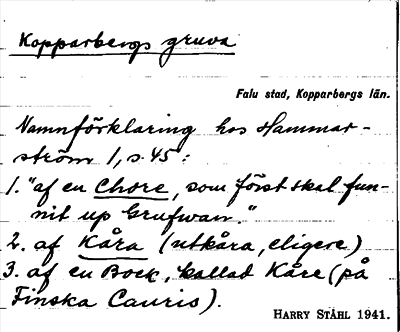 Kopparbergs gruva
Falu stad, Kopparbergs län.
Namnförklaring hos Hammar-
ström 1, s. 45:
1. "af en Chore, som först skal fun-
nit up Grufwan."
2. af Kåra (utkåra, eligere)
3. af en Bock, kallad Kåre (på
Finska Cauris).
HARRY STÅHL 1941.